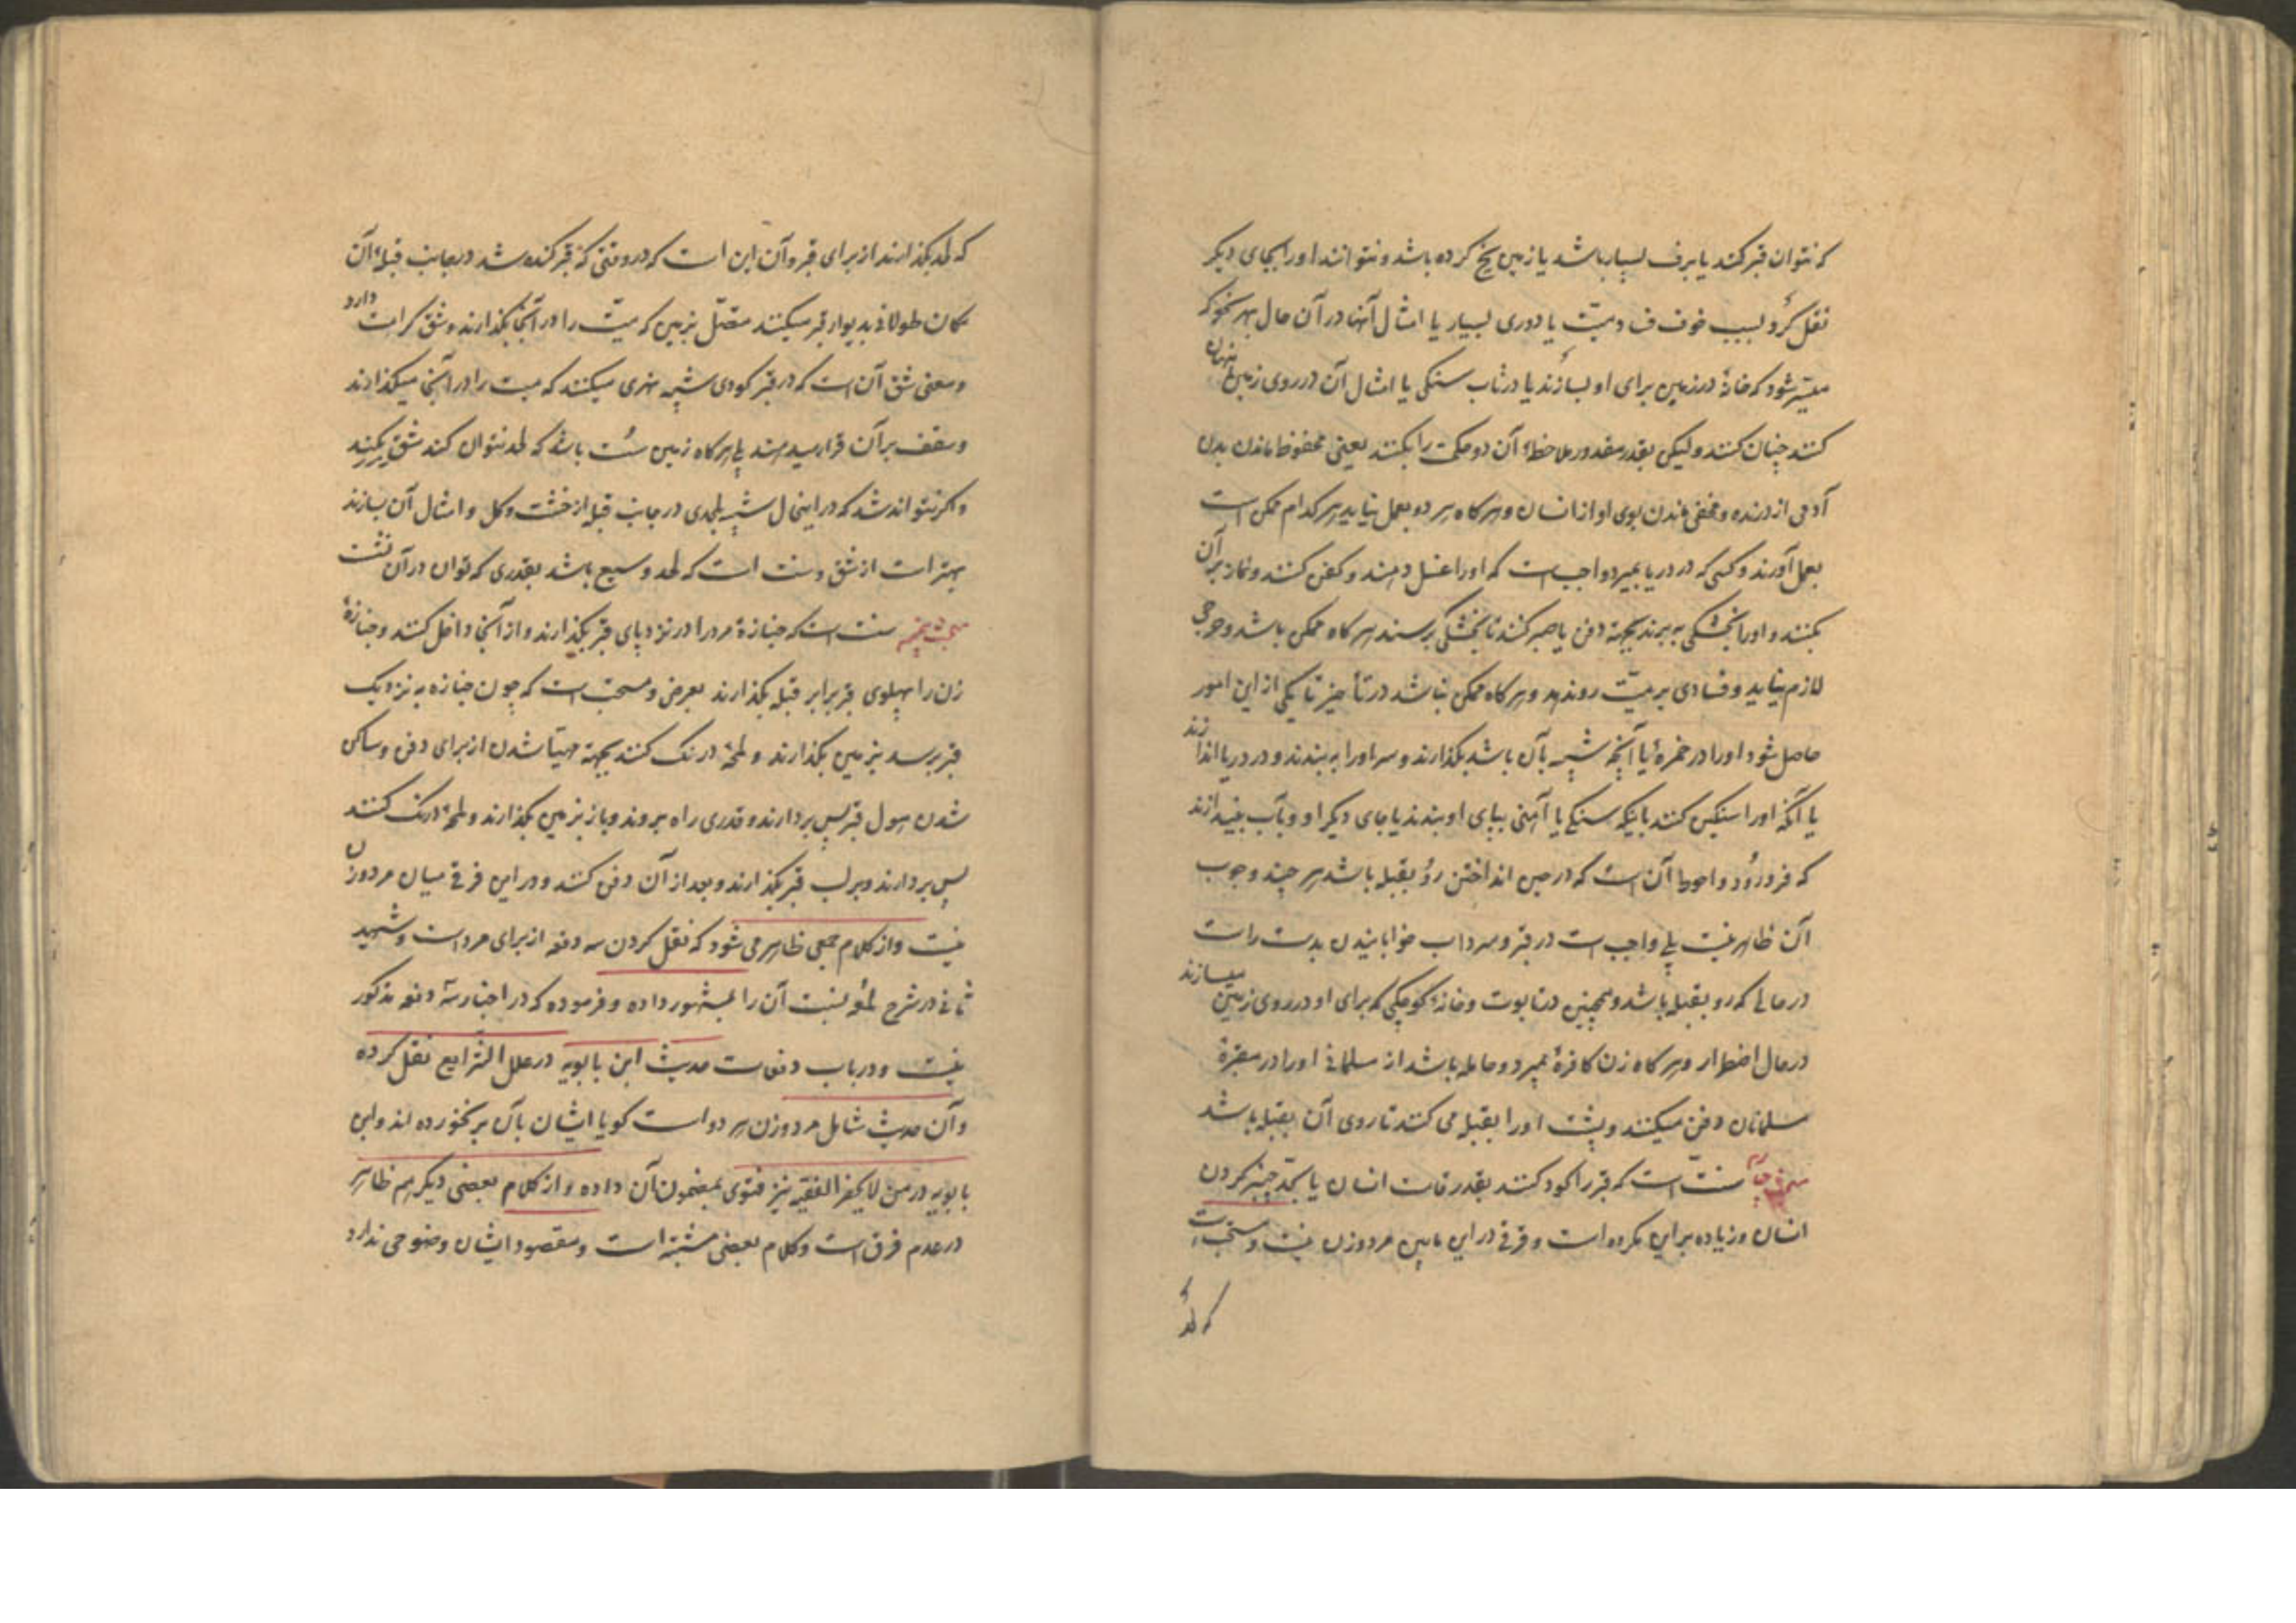 که نتوان قبر کند یا برف بسیار باشد یا زمین یخ کرده باشد و نتوانند او را بجای دیگر
نقل کرد بسبب خوف فساد میّت یا دوری بسیار یا امثال آنها در آن حال بهر نحو که
میسّر شود که خانهٔ در زمین برای او بسازند یا در تابوت سنگی یا امثال آن در روی زمین پنهان
کنند چنان کنند و لیکن بقدر مقدور ملاحظهٔ آن دو حکمت را بکنند یعنی محفوظ ماندن بدن
آدمی از درنده و مخفی ماندن بوی او از انسان و هر گاه هر دو بعمل نیاید هر کدام ممکن است
بعمل آورند و کسی که در دریا بمیرد واجب است که او را غسل دهند و کفن کنند و نماز بر آن
بکنند و او را بخشکی ببرند بجهة دفن یا صبر کنند تا بخشکی برسند هر گاه ممکن باشد و حرجی
لازم نیاید و فسادی بر میّت روندهد و هر گاه ممکن نباشد در تأخیر تا یکی از این امور
حاصل شود او را در خمرهٔ یا آنچه شبیه بآن باشد بگذارند و سر او را ببندند و در دریا اندازند
یا آنکه او را سنگین کنند باینکه سنگی یا آهنی بپای او بندند یا جای دیگر او و بآب بیندازند
که فرو رود و احوط آن است که در حین انداختن رو بقبله باشد هر چند وجوب
آن ظاهر نیست بلی واجب است در قبر و سرداب خوابانیدن بدست راست
در حالی که رو بقبله باشد و همچنین در تابوت و خانهٔ کوچکی که برای او در روی زمین میسازند
در حال اضطرار و هر گاه زن کافرهٔ بمیرد و حامله باشد از مسلمانی او را در مقبرهٔ
مسلمانان دفن میکنند و پشت او را بقبله می کنند تا روی آن بقبله باشد
مبحث چهارم سنّت است که قبر را گود کنند بقدر قامت انسان یا بحدّ چنبر گردن
انسان و زیاده بر این مکروه است و فرقی در این مابین مرد و زن نیست و مستحب است
که لحد
که لحد بگذارند از برای قبر و آن این است که در وقتی که قبر کنده شد در جانب قبلهٔ آن
مکان طولانی بدیوار قبر میکنند متصّل بزمین که میّت را در آنجا بگذارند و شق کراهت دارد
و معنی شق آن است که در قبر گودی شبیه بنهری میکنند که میت را در آنجا میگذارند
و سقف بر آن قرار میدهند بلی هر گاه زمین سست باشد که لحد نتوان کند شق بکنند
و اگر بتواند شد که در اینحال شبیه بلحدی در جانب قبله از خشت و گل و امثال آن بسازند
بهتر است از شق و سنت است که لحد وسیع باشد بقدری که توان در آن نشست
مبحث پنجم سنت است که جنازهٔ مرد را در نزد پای قبر بگذارند و از آنجا داخل کنند و جنازهٔ
زن را بپهلوی قبر برابر قبله بگذارند بعرض و مستحب است که چون جنازه به نزدیک
قبر برسد بزمین بگذارند و لمحهٔ درنگ کنند بجهة مهیّا شدن از برای دفن و ساکن
شدن هول قبر پس بردارند و قدری راه بروند و باز بزمین بگذارند و لمحهٔ درنگ کنند
پس بردارند و بر لب قبر بگذارند و بعد از آن دفن کنند و در این فرقی میان مرد و زن
نیست و از کلام جمعی ظاهر می شود که نقل کردن سه دفعه از برای مرد است و شهید
ثانی در شرح لمعه نسبت آن را بمشهور داده و فرموده که در اخبار سه دفعه مذکور
نیست و در باب دفعات حدیث ابن بابویه در علل الشرایع نقل کرده
و آن حدیث شامل مرد و زن هر دو است گویا ایشان بآن بر نخورده اند و ابن
بابویه در من لا یحضر الفقیه نیز فتوی بمضمون آن داده و از کلام بعضی دیگر هم ظاهر
در عدم فرق است و کلام بعضی مشتبه است و مقصود ایشان وضوحی ندارد